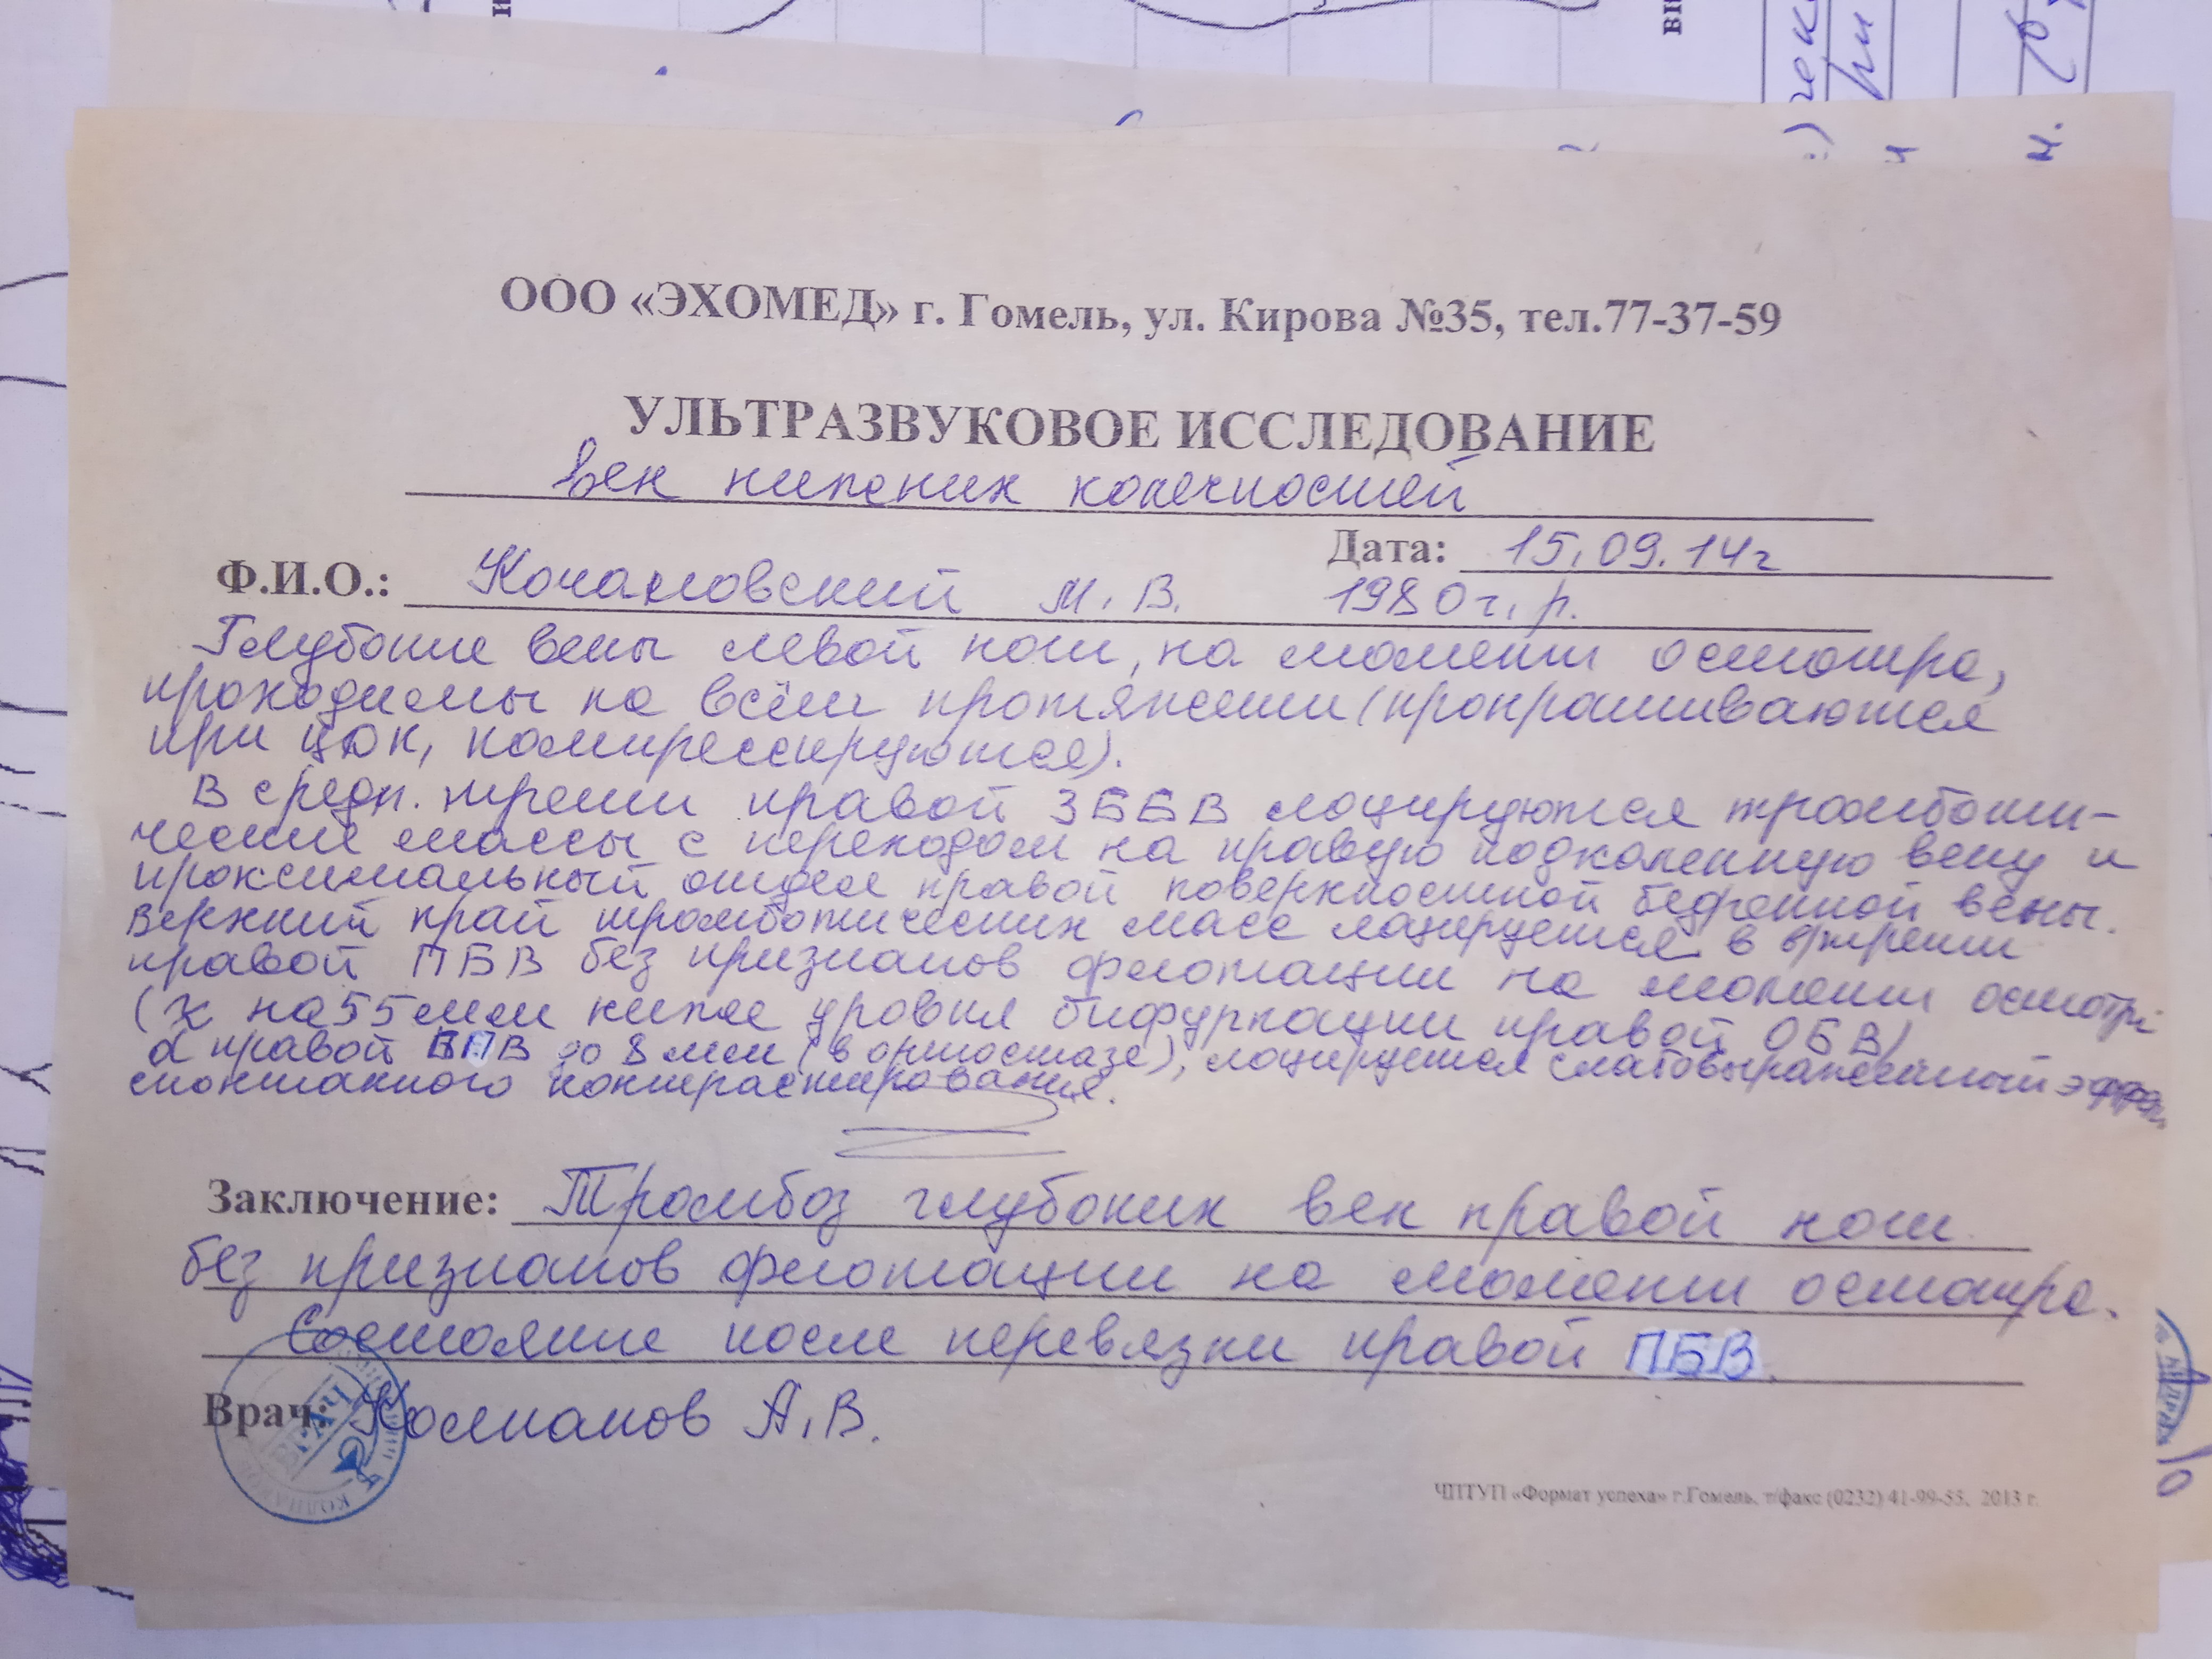 ООО «ЭХОМЕД» г. Гомель, ул. Кирова №35, тел.77-37-59
УЛЬТРАЗВУКОВОЕ ИССЛЕДОВАНИЕ
вен нижних конечностей
Дата: 15.09.14г
Ф.И.О.: М.В. 1980г.р.
Глубокие вены левой ноги, на момент осмотра,
проходимы на всём протяжении (прокрашиваются
при ЦДК, компрессируются).
В средн. трети правой ЗББВ лоцируются тромботи-
ческие массы с переходом на правую подколенную вену и
проксимальный отдел правой поверхностной бедренной вены.
Верхний край тромботических масс лоцируется в в/трети
правой ПБВ без признаков флотации на момент осмотра
(на 55мм ниже уровня бифуркации правой ОБВ)
d правой до 8 мм (в ортостазе), лоцируется слабовыраженный
спонтанного контрастирования.
Заключение: Тромбоз глубоких вен правой ноги
без признаков флотации на момент осмотра.
Состояние после перевязки правой ПБВ.
Врач: Колпаков А.В.
ВРАЧ
ЧПТУП «Формат успеха» г.Гомель, т/факс (0232) 41-99-55, 2013 г.